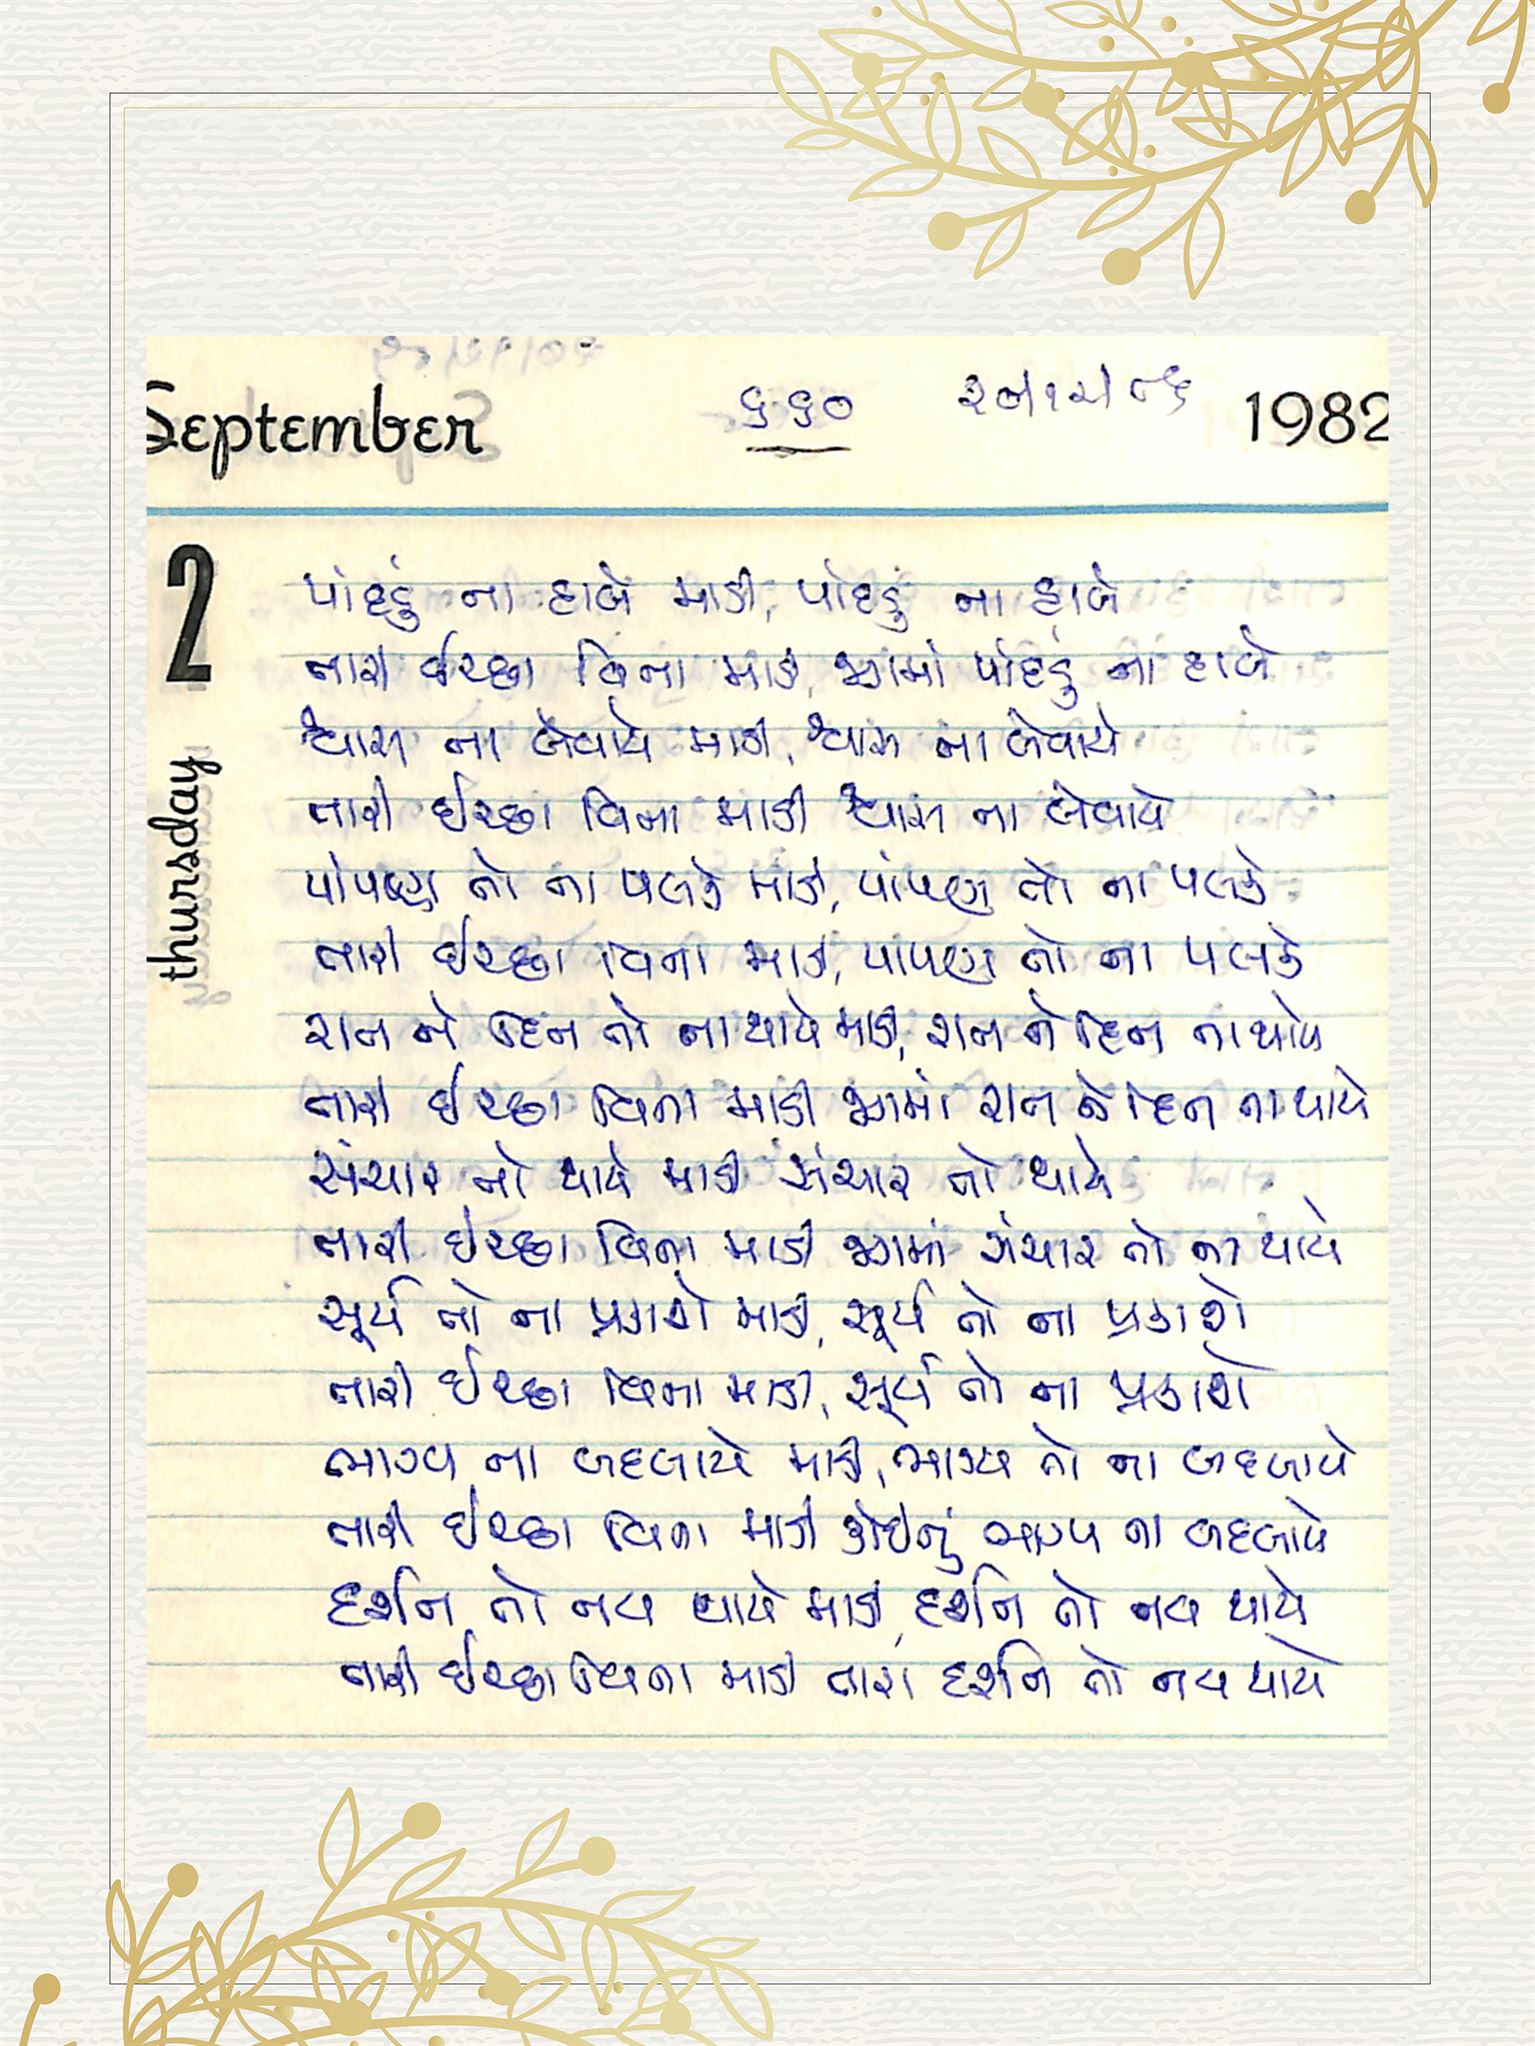 September ૬૬૦ 1982
2
thursday
પાંદડું ના હાલે માડી, પાંદડું ના હાલે
તારી ઈચ્છા વિના માડી, જગમાં પાંદડું ના હાલે
શ્વાસ ના લેવાયે માડી, શ્વાસ ના લેવાયે
તારી ઈચ્છા વિના માડી શ્વાસ ના લેવાયે
પાંપણ તો ના પલકે માડી, પાંપણ તો ના પલકે
તારી ઈચ્છા વિના માડી, પાંપણ તો ના પલકે
રાત ને દિન તો ના થાયે માડી, રાત ને દિન ના થાયે
તારી ઈચ્છા વિના માડી જગમાં રાત ને દિન ના થાયે
સંચાર નો થાયે માડી સંચાર નો થાયે
તારી ઈચ્છા વિના માડી જગમાં સંચાર તો ના થાયે
સૂર્ય તો ના પ્રકાશે માડી, સૂર્ય તો ના પ્રકાશે
તારી ઈચ્છા વિના માડી, સૂર્ય તો ના પ્રકાશે
ભાગ્ય ના બદલાયે માડી, ભાગ્ય તો ના બદલાયે
તારી ઈચ્છા વિના માડી કોઈનું ભાગ્ય ના બદલાયે
દર્શન તો નવ થાયે માડી, દર્શન તો નવ થાયે
તારી ઈચ્છા વિના માડી તારાં દર્શન તો નવ થાયે